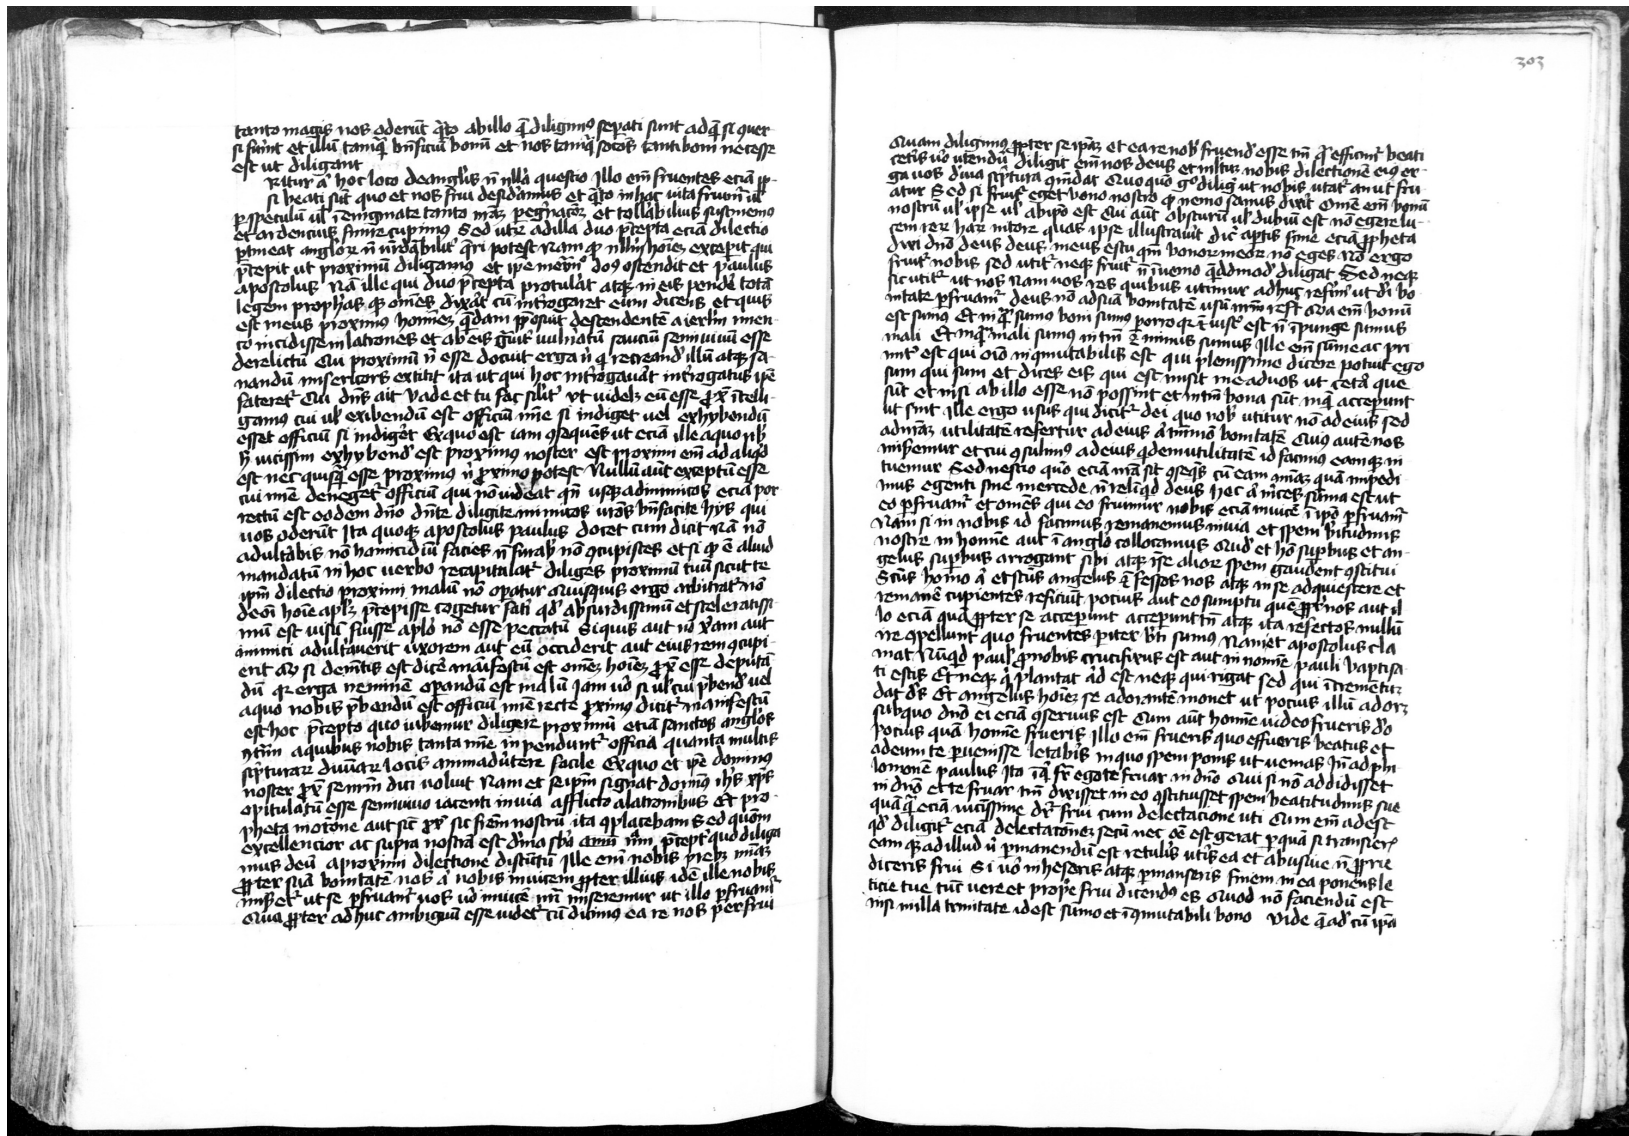 tanto magis nos oderūt q̄to ab illo q̄ diligimꝰ seᵽati sunt ad q̄ si ↄuer
si fuīnt et illū tamq̄ bn̄ficiū bonū et nos tamq̄ socōs tanti boni necesse
est ut diligant
Ritur aͥ hoc loco de angl'is n̄ nlla questio Illo em̄ fruentes eciā ip̄
si beati sūt quo et nos frui desidamus et q̄to in hac uita fruimur ul'
ᵽ speculum ul' ī enigmate tanto nr̄az ᵽegͥnacōz et tollabilius sustinemꝰ
et ardencius finire cupimus Sed utr̄ ad illa duo p̄cepta eciā dilectio
ᵽtineat angl'oꝝ n̄ irr̄onabilit' q̄ri potest Nam ꝙ nllm̄ hoīez exceperit qui
p̄cepit ut proximū diligamus et ip̄e in ew̄o dn̄s ostendit et paulus
apostolus Nā ille qui duo p̄cepta protulat atqꝫ in eis pendē totā
legem prophās qꝫ om̄es dixāt cū int'rogaret eum dicens et quis
est meus proximus hominez q̄dam ꝓposuit descendentē a ierl'm in ieri
co incidisse in latrones et ab eis g̃uit' uuln'atū saucium semiuiuū esse
derelictū Cui proximū n̄ esse docuit erga n̄ q̄ recreand' illū atqꝫ sa
nandū misericors extitit ita ut qui hoc int'rogauāt int'rogatus ip̄e
fateret' Cui dn̄s ait Vade et tu fac silit' vt uidelz eū esse ꝓx̄ ītelli
gamus cui ul' exibendū est officiū mīe si indiget uel exhybendū
esset officiū si indigēt Ex quo est iam ↄsequēs ut eciā ille a quo nob'
h' uicissim exhybend' est proximus noster est proximi em̄ ad aliq̄d
est nec quisq̄ esse proximus n̄ ꝓximo potest Nullū aūt exceptū esse
cui mīe denegetᵣ officiū qui nō uideat qn̄ usqꝫ ad inimicos eciā por
rectū est eodem dn̄o dn̄te diligite inimicos ur̄os bn̄facite hys qui
uos oderūt Ita quoqꝫ apostolus paulus docet cum dicit Nā nō
adulťabis nō homicidiū facies n̄ furab' nō ↄcupistes et si qͥ ē aliud
mandatū in hoc uerbo recapitulatᵣ diliges proximū tuū sicut te
ip̄m dilectio proximi malū nō oᵽatur Quisquis ergo arbitratᵣ nō
de om̄i hoīe apl'm p̄cepisse cogetur fatī qd' absurdissimū et sceleratissi
mū est uisū fuisse aplō nō esse peccatū Si quis aut nō xͥam aut
inimici adulťauerit uxorem aut eū occiderit aut eius rem ↄcupi
erit Aꝫ si dem̄tis est dicē manifestū est om̄ez hoīez ꝓx̄ esse deputā
dū qꝛ erga neminē oᵽandū est malū Iam ūo si ul' cui p̄bend' uel
a quo nobis p̄bendū est officiū mīe recte ꝓximus dicitᵣ manifestū
est hoc p̄cepto quo iubemur diligere proximū eciā sanctos angl'os
ↄtin̄i a quibus nobis tanta mīe inpenduntᵣ officia quanta multis
scͥpturaꝝ diuinaꝝ locis animaďutere facile Ex quo et ip̄e dominus
noster ꝓx̄ se nrm̄ dici uoluit Nam et seip̄m signat dominꝰ ihs xp̄s
opitulatū esse semiuiuo iacenti in uia afflicto a latronibus Et pro
pheta in or̄one aut sic̄ ꝓx̄ sic fr̄em nostrū ita ↄplacebam Sed quom̄
excellencior ac supra nostrā est dīna sb'a p̄cept' quo diliga
mus deū a proximi dilectione distīctū Ille em̄ nobis p̄bꝫ mīaz
ꝓpter suā bonitatē nos aͥ nobis inuicem ꝓpter illius idē ille nobis
mis̄et' ut se ᵽfruamᵣ nos ūo inuicē nr̄i miseremur ut illo ᵽfruamᵣ
Qua ꝓpter adhuc ambiguū esse uidetᵣ cū dicimus ea re nos perfrui
303
Quam diligimus ꝓpter se ip̄az et ea re nob' fruend' esse tm̄ qͣ efficimᵣ beati
cetīs ūo utendū diligit em̄ nos deus et mltuꝫ nobis dilectionē eiꝰ er
ga nos dīua scͥptura ↄmēdat Quo quō gͦ diligͭ ut nobis utatᵣ an ut fru
atur Sed si fruitᵣ eget bono nostro qͩ nemo sanus dixīt Omē em̄ bonū
nostrū ul' ipse ul' ab ip̄o est Cui aūt obscurū ul' dubiū est nō egere lu
cem reꝝ haꝝ nitore quas ipse illustrauīt dic̄ aᵽtis sime eciā ꝓpheta
dixi dn̄o deus deus meus es tu qm̄ bonoꝝ meoꝝ nō eges Nō ergo
fruitᵣ nobis sed utitᵣ neqꝫ fruitᵣ n̄ īuenio q̄ādmod' diligat Sed neqꝫ
sic utitᵣ ut nos Nam nos res quibus utimur ad huc refīmꝰ ut dī bo
nitate ᵽfruamᵣ deus nō ad suā bonitatē usū nrm̄ reft̄ Qua em̄ bonū
est sumꝰ Et in qͣ sumꝰ boni sumꝰ porro qꝛ et iustꝰ est n̄ īpunge sumus
mali Et inqͣ mali sumꝰ in tm̄ et minus sumus Ille em̄ sūme ac pri
mitꝰ est qui oīo inↄmutabilis est qui plenissime dicere potuit ego
sum qui sum et dices eis qui est misit me ad uos ut cetā que
sūt et nisi ab illo esse nō possint et in tm̄ bona sūt inqͣ acceperunt
ut sint Ille ergo usus qui dicitᵣ dei quo nob' utitur nō ad eius sed
ad nr̄az utilitatē refertur ad eius aͥ tmm̄o bonitatē Cuiꝰ autē nos
miseremur et cui ↄsulimꝰ ad eius qͥdem utilitatē id facimꝰ eamqꝫ in
tuemur Sed nescio quō eciā nr̄a sit ↄseq̄s cū eam mīaz quā inpedi
mus egenti sine mercede n̄ reliq̄d deus hec aͥ mīces sūma est ut
eo ᵽfruamᵣ et omēs qui eo fruimur nobis eciā inuicē ī ip̄o ᵽfruamᵣ
Nam si in nobis id facimus remanemus in uia et spem b'itudinis
nostre in homīe aut ī anglō collocamus Qud' et hō suᵽbus et an
gelus suᵽbus arrogant sibi atqꝫ in se alioꝝ spem gaudent ↄstitui
Scūs homo aͥ et scūs angelus et fessos nos atqꝫ in se adquiescere et
remanē cupientes reficiūt pocius aut eo sumptu que ꝓpt' nos aut il
lo eciam quā ꝓpter se acceperunt acceperunt tn̄ atqꝫ ita refectos nullū
ire ↄpellunt quo fruentes ᵽiter b'ti sumus Nam et apostolus cla
mat Nūqd paul' ꝓ nobis crucifixus est aut in nomīe pauli baptisa
ti estis Et neqꝫ qͥ plantat ad est neqꝫ qui rigat sed qui īcrementuꝫ
dat d's Et angelus hoīez se adorantē monet ut pocius illū adoꝝ
sub quo dn̄o ei eciā ↄseruus est Cum aūt homīe uideo frueris d'o
pocius quā homīe frueris Illo em̄ frueris quo effueris beatus et
ad eum te ᵽuenisse letab'is in quo spem ponis ut uenias In̄ ad phi
lomonē paulus Ita īqͥ fr̄ ego te fruar in dn̄o Qui si nō addidisset
in dn̄o et te fruar tm̄ dixisset in eo ↄstituisset spem beatitudinis sue
quā q̄ eciā uicissime drͬ frui cum delectacione uti Cum em̄ adest
qd' diligitᵣ eciā delectacōnē secū nec ōe est gerat ᵽ quā si transieꝝ
eam qꝫ ad illud ū ᵽmanendū est retulīs utīs ea et abusiue n̄ ꝓprie
diceris frui Si ūo inheseris atqꝫ ᵽmanseris finem in ea ponens le
ticie tue tūc uere et prop̄e frui dicendꝰ es Quod nō faciendū est
nisi in illa trinitate id est sūmo et īↄmutabili bono Vide q̄ad' cū ip̄a